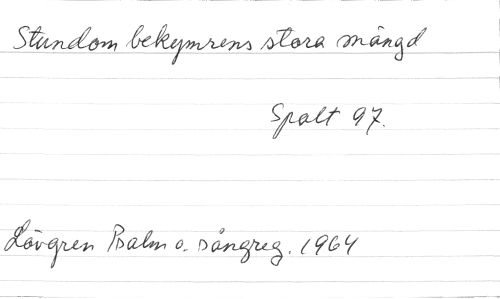 Stundom bekymrens stora mängd
Spalt 97.
Lövgren Psalm o. sångreg. 1964